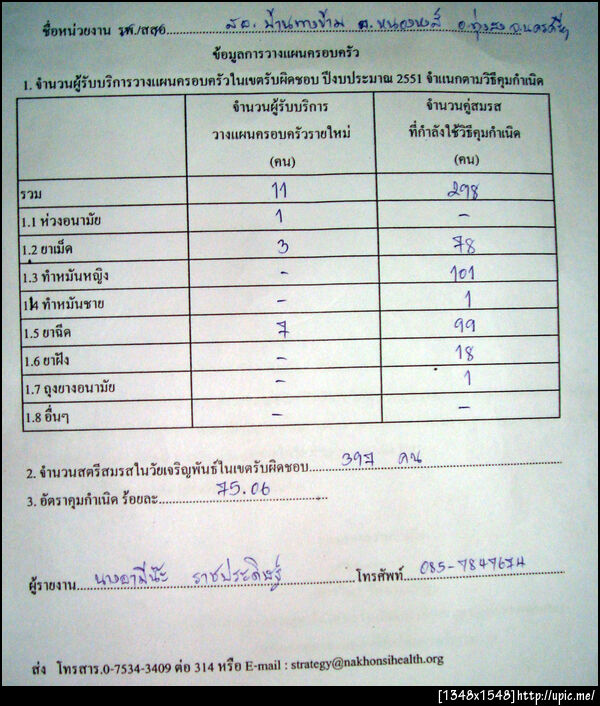 ชื่อหน่วยงาน รพ./สสอ. สอ. บ้านทางข้าม ต. หนองหงส์ อ.ทุ่งสง จ.นครศรีฯ
ข้อมูลการวางแผนครอบครัว
1. จำนวนผู้รับบริการวางแผนครอบครัวในเขตรับผิดชอบ ปีงบประมาณ 2551 จำแนกตามวิธีคุมกำเนิด
จำนวนผู้รับบริการ จำนวนคู่สมรส
วางแผนครอบครัวรายใหม่ ที่กำลังใช้วิธีคุมกำเนิด
(คน) (คน)
รวม 11 298
1.1 ห่วงอนามัย 1 -
1.2 ยาเม็ด 3 78
1.3 ทำหมันหญิง - 101
1.4 ทำหมันชาย - 1
1.5 ยาฉีด 7 99
1.6 ยาฝัง - 18
1.7 ถุงยางอนามัย - 1
1.8 อื่นๆ - -
2. จำนวนสตรีสมรสในวัยเจริญพันธ์ในเขตรับผิดชอบ 397 คน
3. อัตราคุมกำเนิด ร้อยละ 75.06
ผู้รายงาน นางอามีน๊ะ ราชประดิษฐ์ โทรศัพท์ 085-7847674
ส่ง โทรสาร.0-7534-3409 ต่อ 314 หรือ E-mail : strategy@nakhonsihealth.org
[1348x1548]http://upic.me/